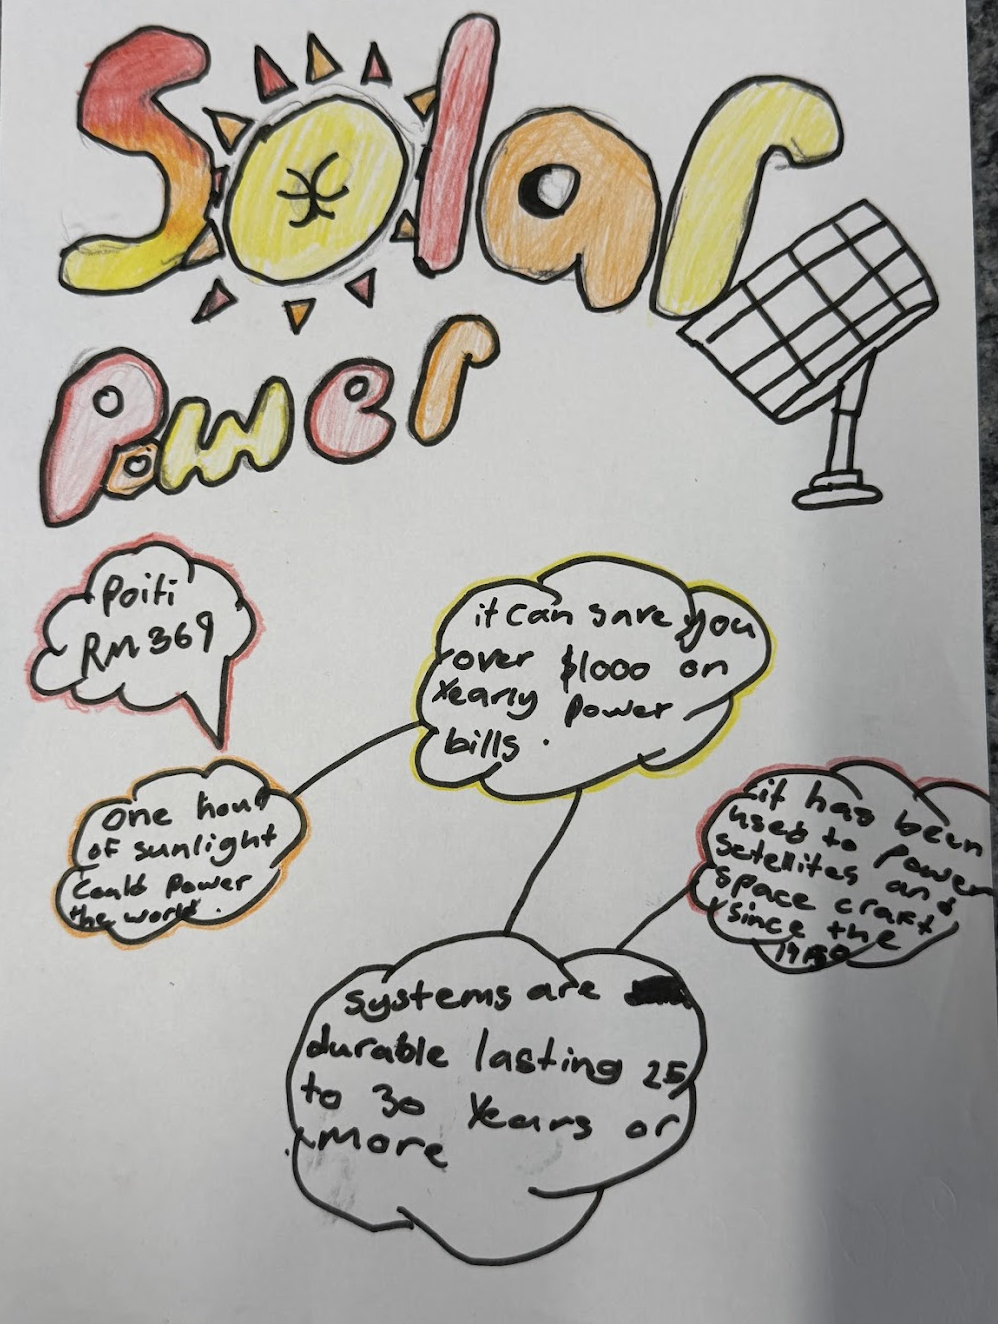 Solar
Power
Poiti
RM369
it can save you
over $1000 on
Yearly Power
bills.
one hour
of sunlight
could Power
the world.
it has been
used to Power
satellites and
space craft
since the
systems are
durable lasting 25
to 30 Years or
more